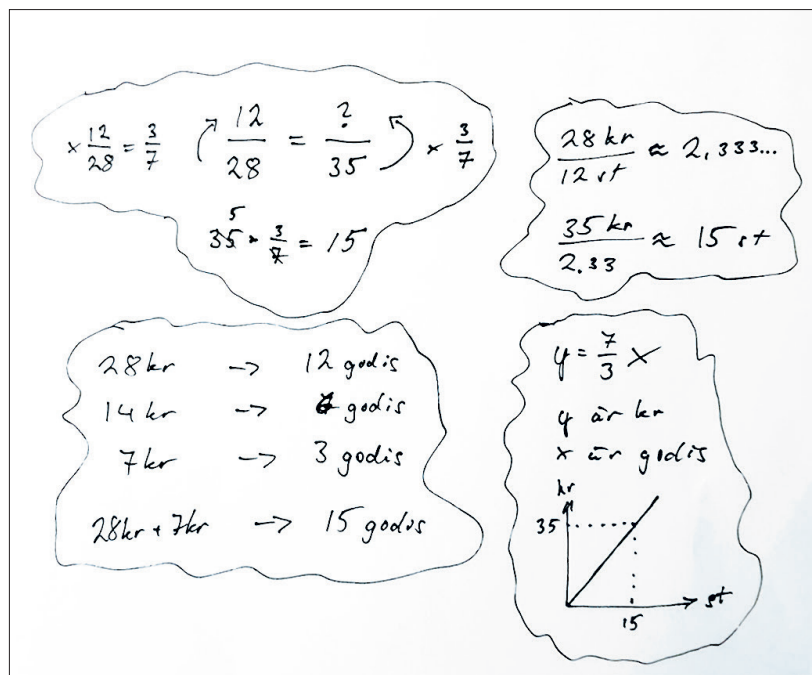 × 12/28 = 3/7 12/28 = ?/35 × 3/7
5
35 × 3/7 = 15
28 kr/12 st ≈ 2,333...
35 kr/2.33 ≈ 15 st
28 kr → 12 godis
14 kr → 6 godis
7 kr → 3 godis
28 kr + 7 kr → 15 godis
y = 7/3 x
y är kr
x är godis
kr
35
st
15